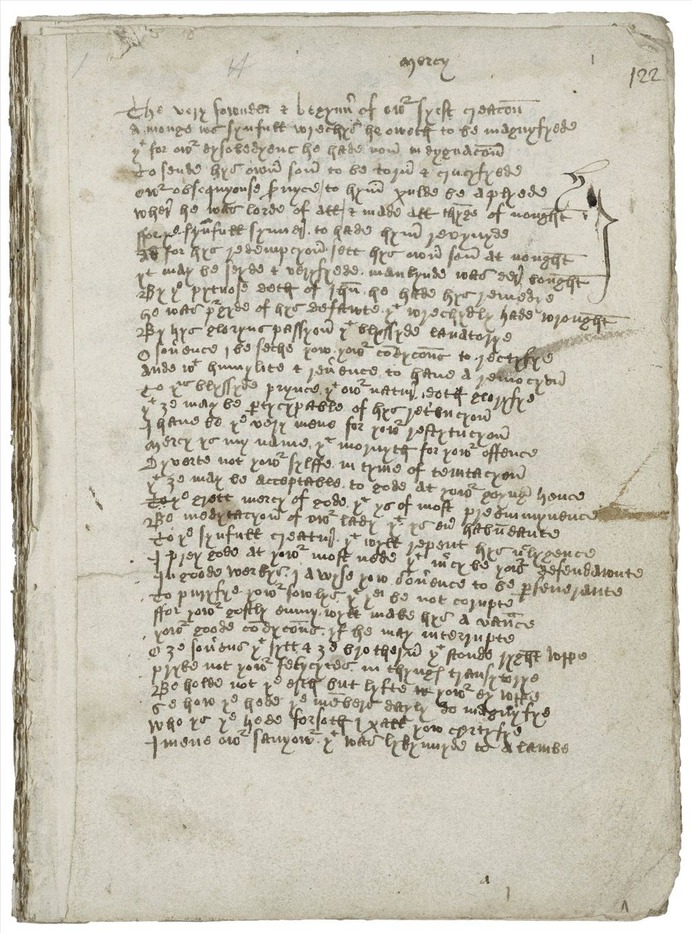 Mercy
122
The very fownder & begynn' of owr fyrst creacōn
A monge ws synfull wrechys he oweth to be magnyfyede
yt for owr dysobedyenc he hade non indygnacōn
To sende hys own son to be torn & crucyfyede
Owr obsequyouse s'uyce to hym xulde be aplyede
Wher he was lorde of all & made all thȳge of nought
ffor ye synnfull synner to hade hym revyvyde
And for hys redempcyon sett hys own son at nought
yt may be seyde & veryfyede mankynde was der bought
By ye pytuose deth of Jhū he hade hys remedye
he was p'gyde of hys defawte yt wrechydly hade wrought
By hys gloryus passyon yt blyssyde lauatorye
O sou'ence I beseche yow yowr cōdycōns to rectyfye
Ande wt humylite & reu'ence to haue a remocyon
To ys blyssyde prynce yt owr natur doth gloryfye
yt ȝe may be ptycypable of hys retbucyon
I haue be ye very mene for yowr restytucyon
Mercy ys my name yt mornyth for yowr offence
Dyverte not yowr sylffe in tyme of temtacyon
yt ȝe may be acceptable to gode at yowr goyng hence
ye grett mercy of gode yt ys of most preemmynence
Be medyacyon of owr lady yt ys eu' habūdante
To ye synfull creatur yt wyll repent hys neclygence
I prey gode at yowr most nede yt m'cy be yowr defendawnte
In goode werkys I awyse yow sou'ence to be pseuerante
To puryfye yowr sowlys yt yei be not corupte
ffor yowr gostly enmy wyll make hys a vaūte
yowr goode cōdycōns yf he may interrupte
O ȝe sou'ens yt sytt & ȝe brothern yt stonde ryght wppe
pryke not yowr felycytes in thyngs transytorye
Be holde not ye erth but lyfte yowr ey wppe
Se how ye hede ye mēbers dayly do magnyfye
Who ys ye hede forsoth I xall yow certyfye
I mene owr sauyowr yt was lykynnyde to a lambe